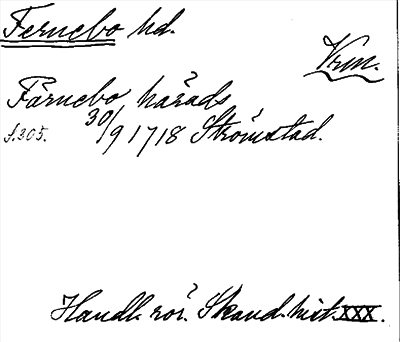 Fernebo hd.
Vrm.
Färnebo härads
s.305. 30/9 1718 Strömstad.
Handl. rör. Skand. hist. XXX.